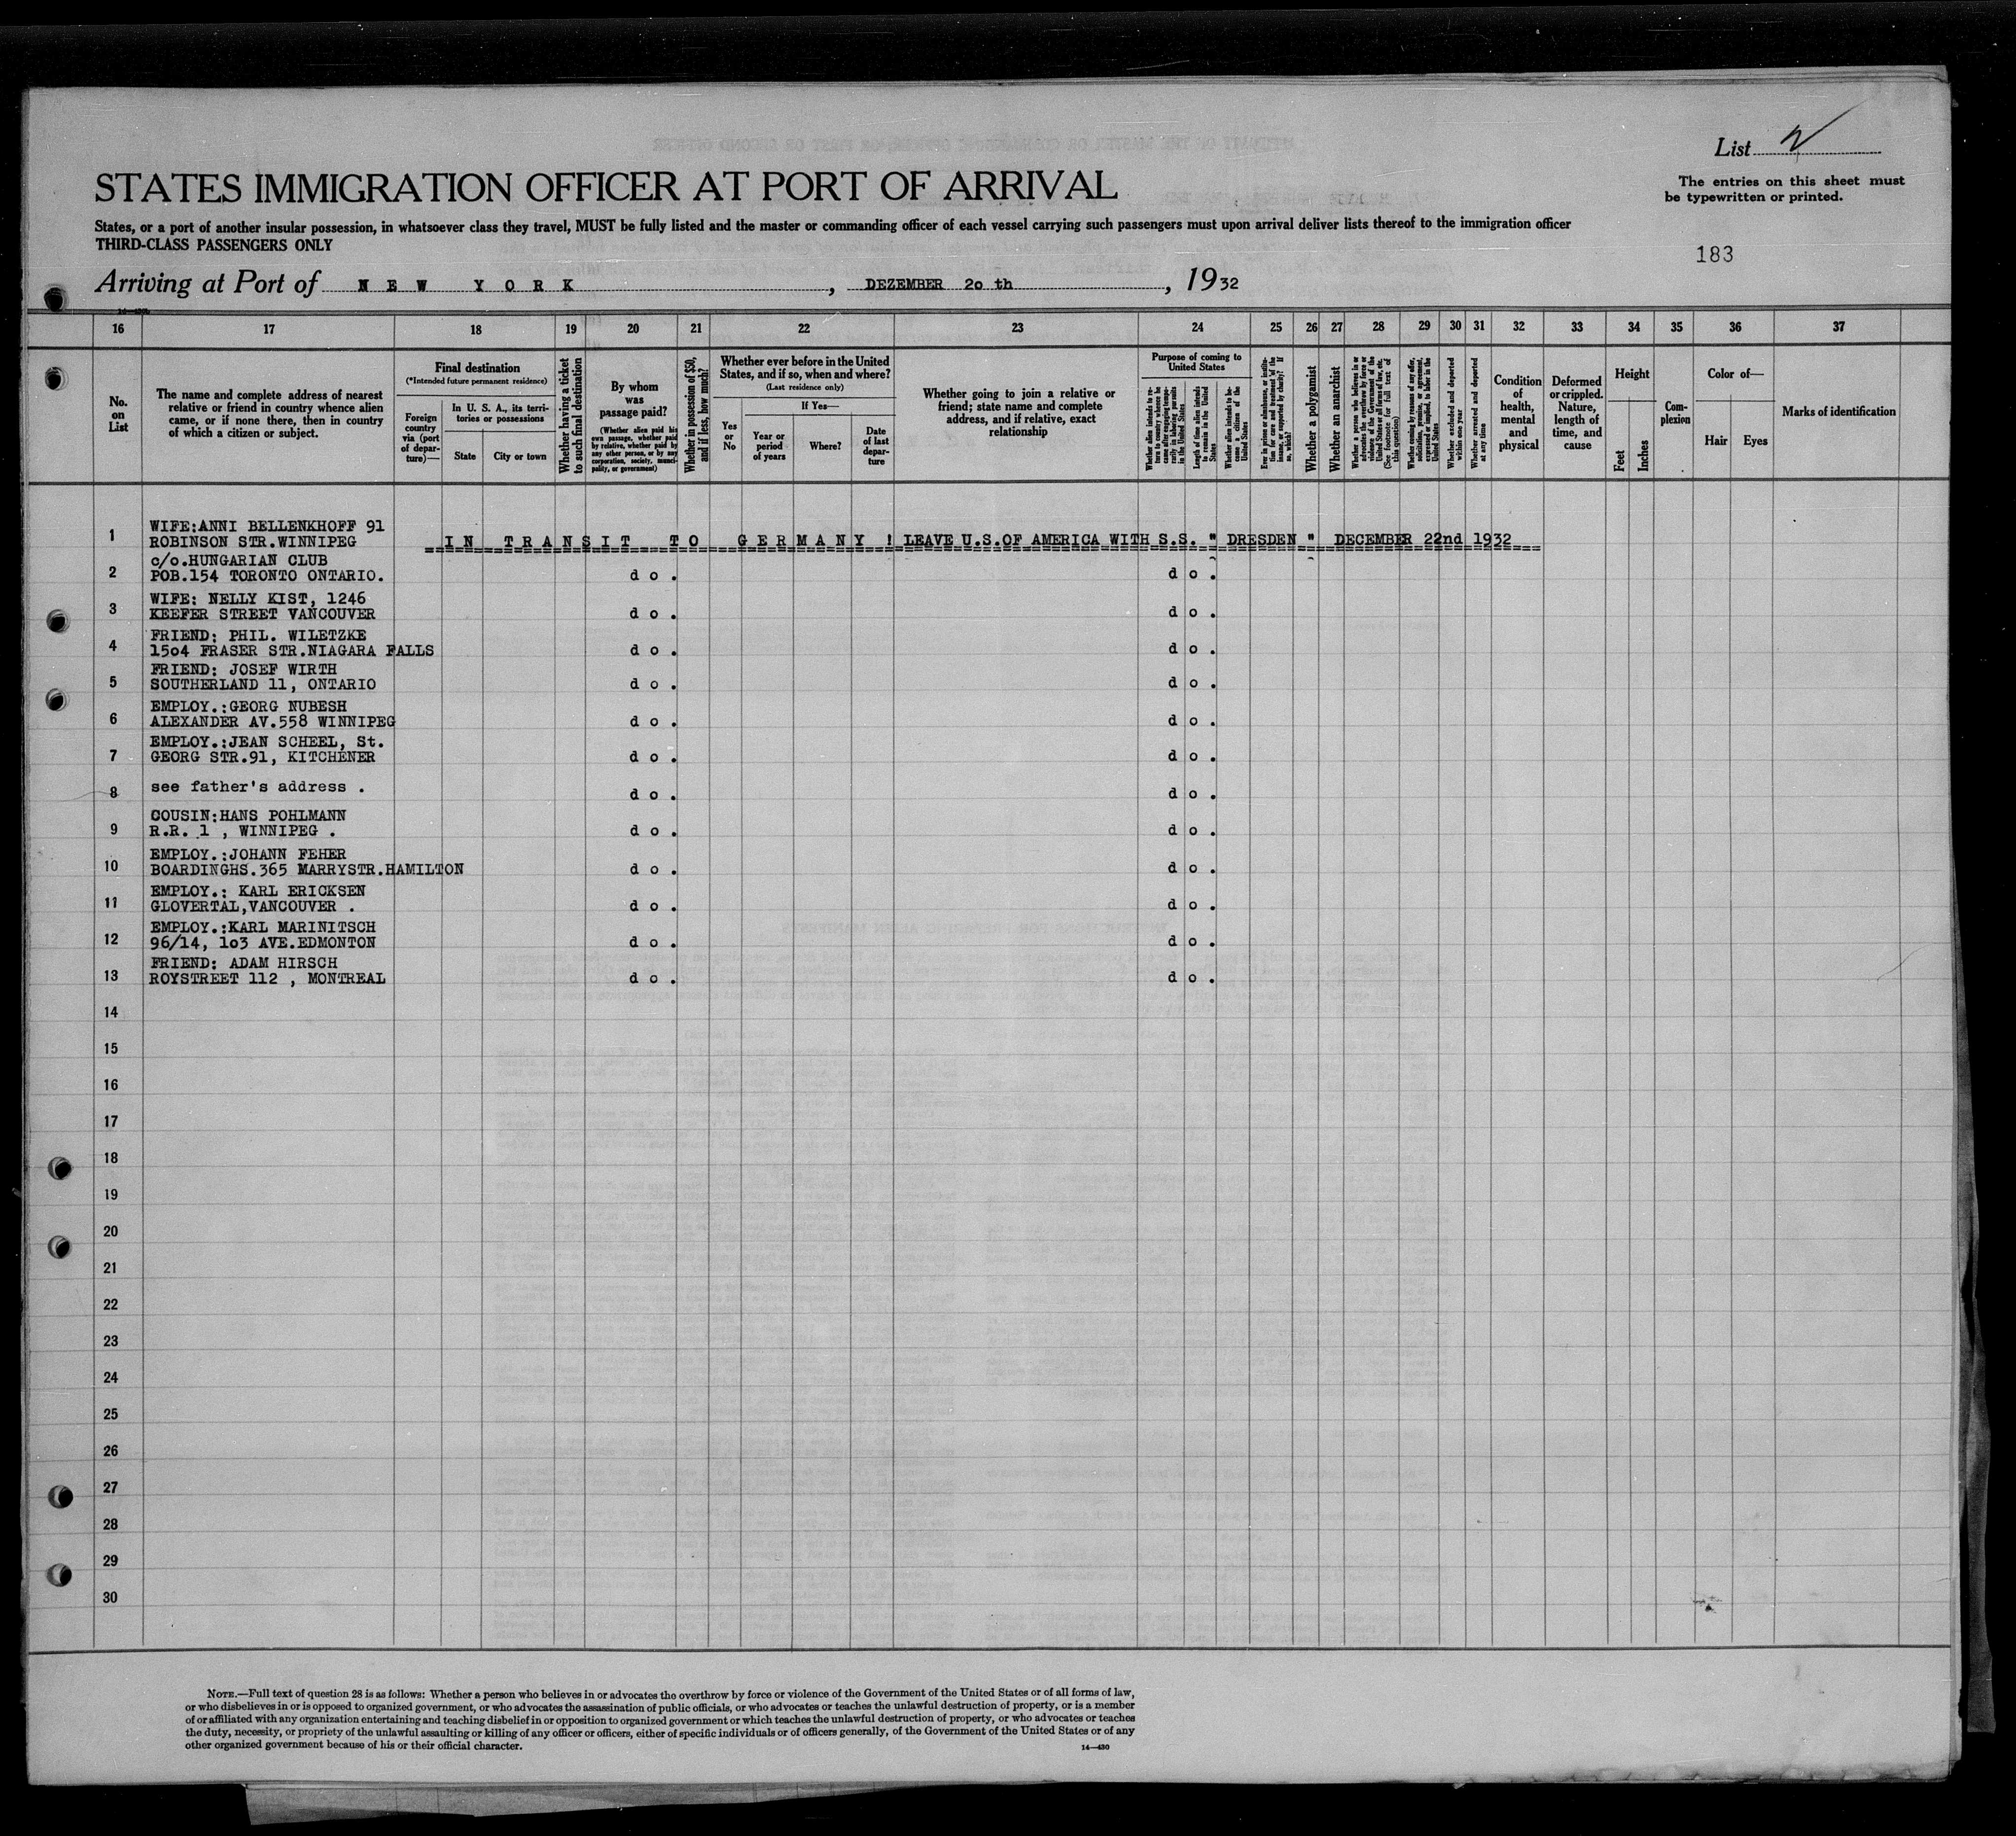 List 2
STATES IMMIGRATION OFFICER AT PORT OF ARRIVAL
The entries on this sheet must
be typewritten or printed.
States, or a port of another insular possession, in whatsoever class they travel, MUST be fully listed and the master or commanding officer of each vessel carrying such passengers must upon arrival deliver lists thereof to the immigration officer
THIRD-CLASS PASSENGERS ONLY
183
Arriving at Port of NEW YORK, DEZEMBER 2o th, 1932
16 17 18 19 20 21 22 23 24 25 26 27 28 29 30 31 32 33 34 35 36 37
No.
on
List
The name and complete address of nearest
relative or friend in country whence alien
came, or if none there, then in country
of which a citizen or subject.
Final destination
(*Intended future permanent residence)
Foreign
country
via (port
of depar-
ture)—
In U. S. A., its terri-
tories or possessions
State
City or town
Whether having a ticket
to such final destination
By whom
was
passage paid?
(Whether alien paid his
own passage, whether paid
by relative, whether paid by
any other person, or by any
corporation, society, munici-
pality, or government)
Whether in possession of $50,
and if less, how much?
Whether ever before in the United
States, and if so, when and where?
(Last residence only)
Yes
or
No
If Yes—
Year or
period
of years
Where?
Date
of last
depar-
ture
Whether going to join a relative or
friend; state name and complete
address, and if relative, exact
relationship
Purpose of coming to
United States
Whether alien intends to re-
turn to country whence he
came after engaging tempo-
rarily in laboring pursuits
in the United States
Length of time alien intends
to remain in the United
States
Whether alien intends to be-
come a citizen of the
United States
Ever in prison or almshouse, or institu-
tion for care and treatment of the
insane, or supported by charity? If
so, which?
Whether a polygamist
Whether an anarchist
Whether a person who believes in or
advocates the overthrow by force or
violence of the Government of the
United States or all forms of law, etc.
(See footnote for full text of
this question)
Whether coming by reasons of any offer,
solicitation, promise, or agreement,
expressed or implied, to labor in the
United States
Whether excluded and deported
within one year
Whether arrested and deported
at any time
Condition
of
health,
mental
and
physical
Deformed
or crippled.
Nature,
length of
time, and
cause
Height
Feet
Inches
Com-
plexion
Color of—
Hair
Eyes
Marks of identification
1 WIFE:ANNI BELLENKHOFF 91
ROBINSON STR.WINNIPEG IN TRANSIT TO GERMANY ! LEAVE U.S.OF AMERICA WITH S.S. " DRESDEN " DECEMBER 22nd 1932
c/o.HUNGARIAN CLUB
2 POB.154 TORONTO ONTARIO. do. do.
WIFE: NELLY KIST, 1246
3 KEEFER STREET VANCOUVER do. do.
FRIEND: PHIL. WILETZKE
4 15o4 FRASER STR.NIAGARA FALLS do. do.
FRIEND: JOSEF WIRTH
5 SOUTHERLAND 11, ONTARIO do. do.
EMPLOY.:GEORG NUBESH
6 ALEXANDER AV.558 WINNIPEG do. do.
EMPLOY.:JEAN SCHEEL, St.
7 GEORG STR.91, KITCHENER do. do.
8 see father's address . do. do.
COUSIN:HANS POHLMANN
9 R.R. 1 , WINNIPEG . do. do.
EMPLOY.:JOHANN FEHER
10 BOARDINGHS.365 MARRYSTR.HAMILTON do. do.
EMPLOY.: KARL ERICKSEN
11 GLOVERTAL,VANCOUVER . do. do.
EMPLOY.:KARL MARINITSCH
12 96/14, 1o3 AVE.EDMONTON do. do.
FRIEND: ADAM HIRSCH
13 ROYSTREET 112 , MONTREAL do. do.
14
15
16
17
18
19
20
21
22
23
24
25
26
27
28
29
30
NOTE.—Full text of question 28 is as follows: Whether a person who believes in or advocates the overthrow by force or violence of the Government of the United States or of all forms of law,
or who disbelieves in or is opposed to organized government, or who advocates the assassination of public officials, or who advocates or teaches the unlawful destruction of property, or is a member
of or affiliated with any organization entertaining and teaching disbelief in or opposition to organized government or which teaches the unlawful destruction of property, or who advocates or teaches
the duty, necessity, or propriety of the unlawful assaulting or killing of any officer or officers, either of specific individuals or of officers generally, of the Government of the United States or of any
other organized government because of his or their official character.
14—430